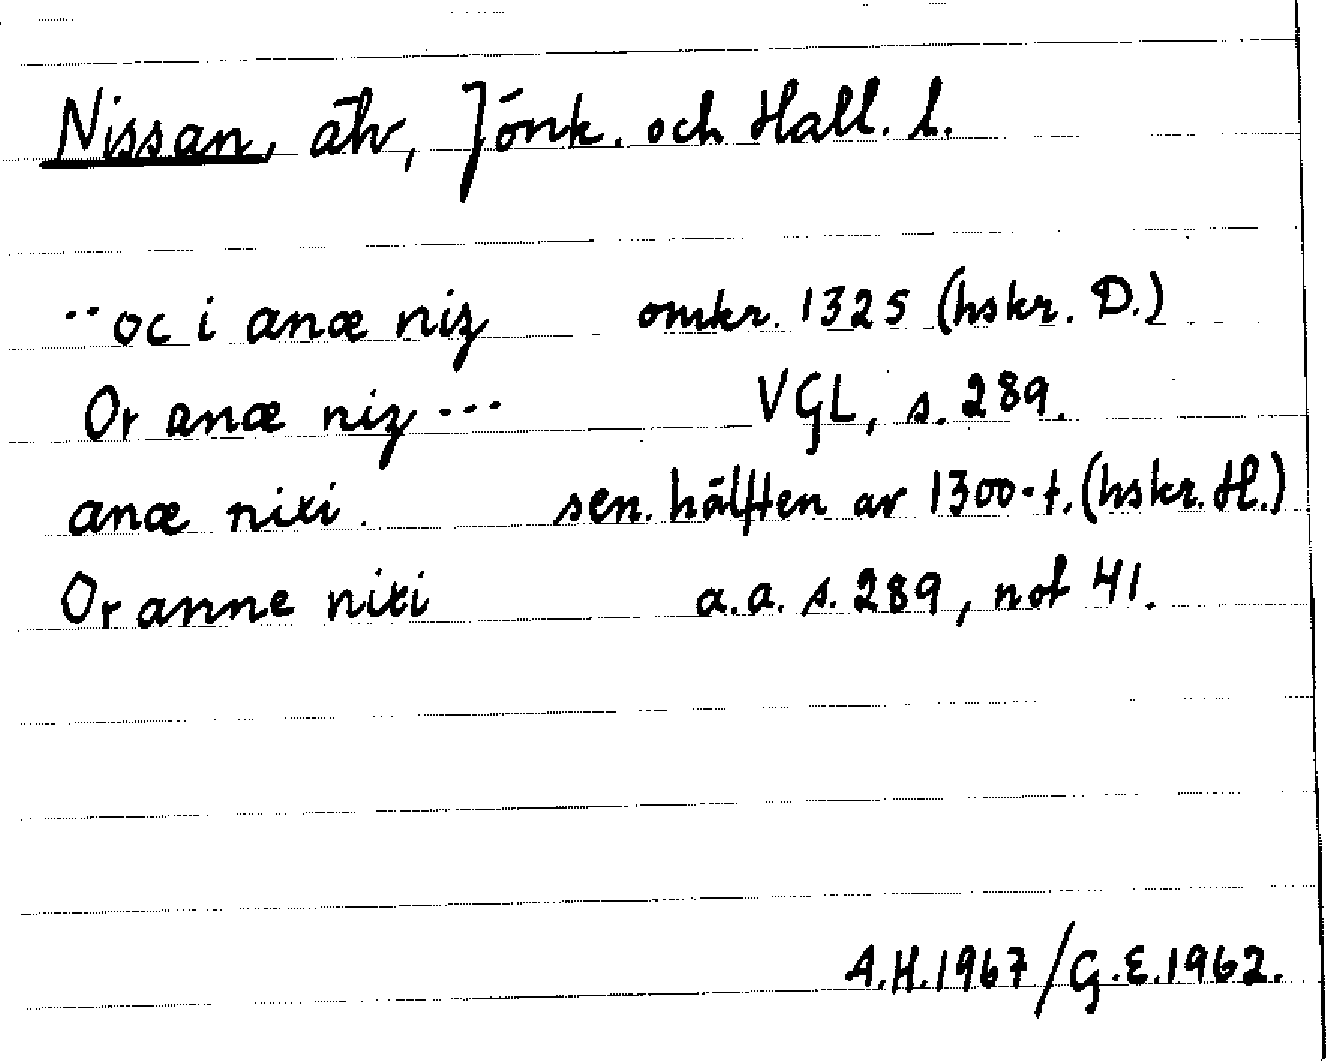 Nissan, älv, Jönk. och Hall. l.
..oc i anæ niz omkr. 1325 (hskr. D.)
Or anæ niz... VGL, s. 289.
anæ nizi. sen. hälften av 1300-t. (hskr. H.)
Or anne nizi a.a. s. 289, not 41.
A.H. 1967/G.E. 1962.